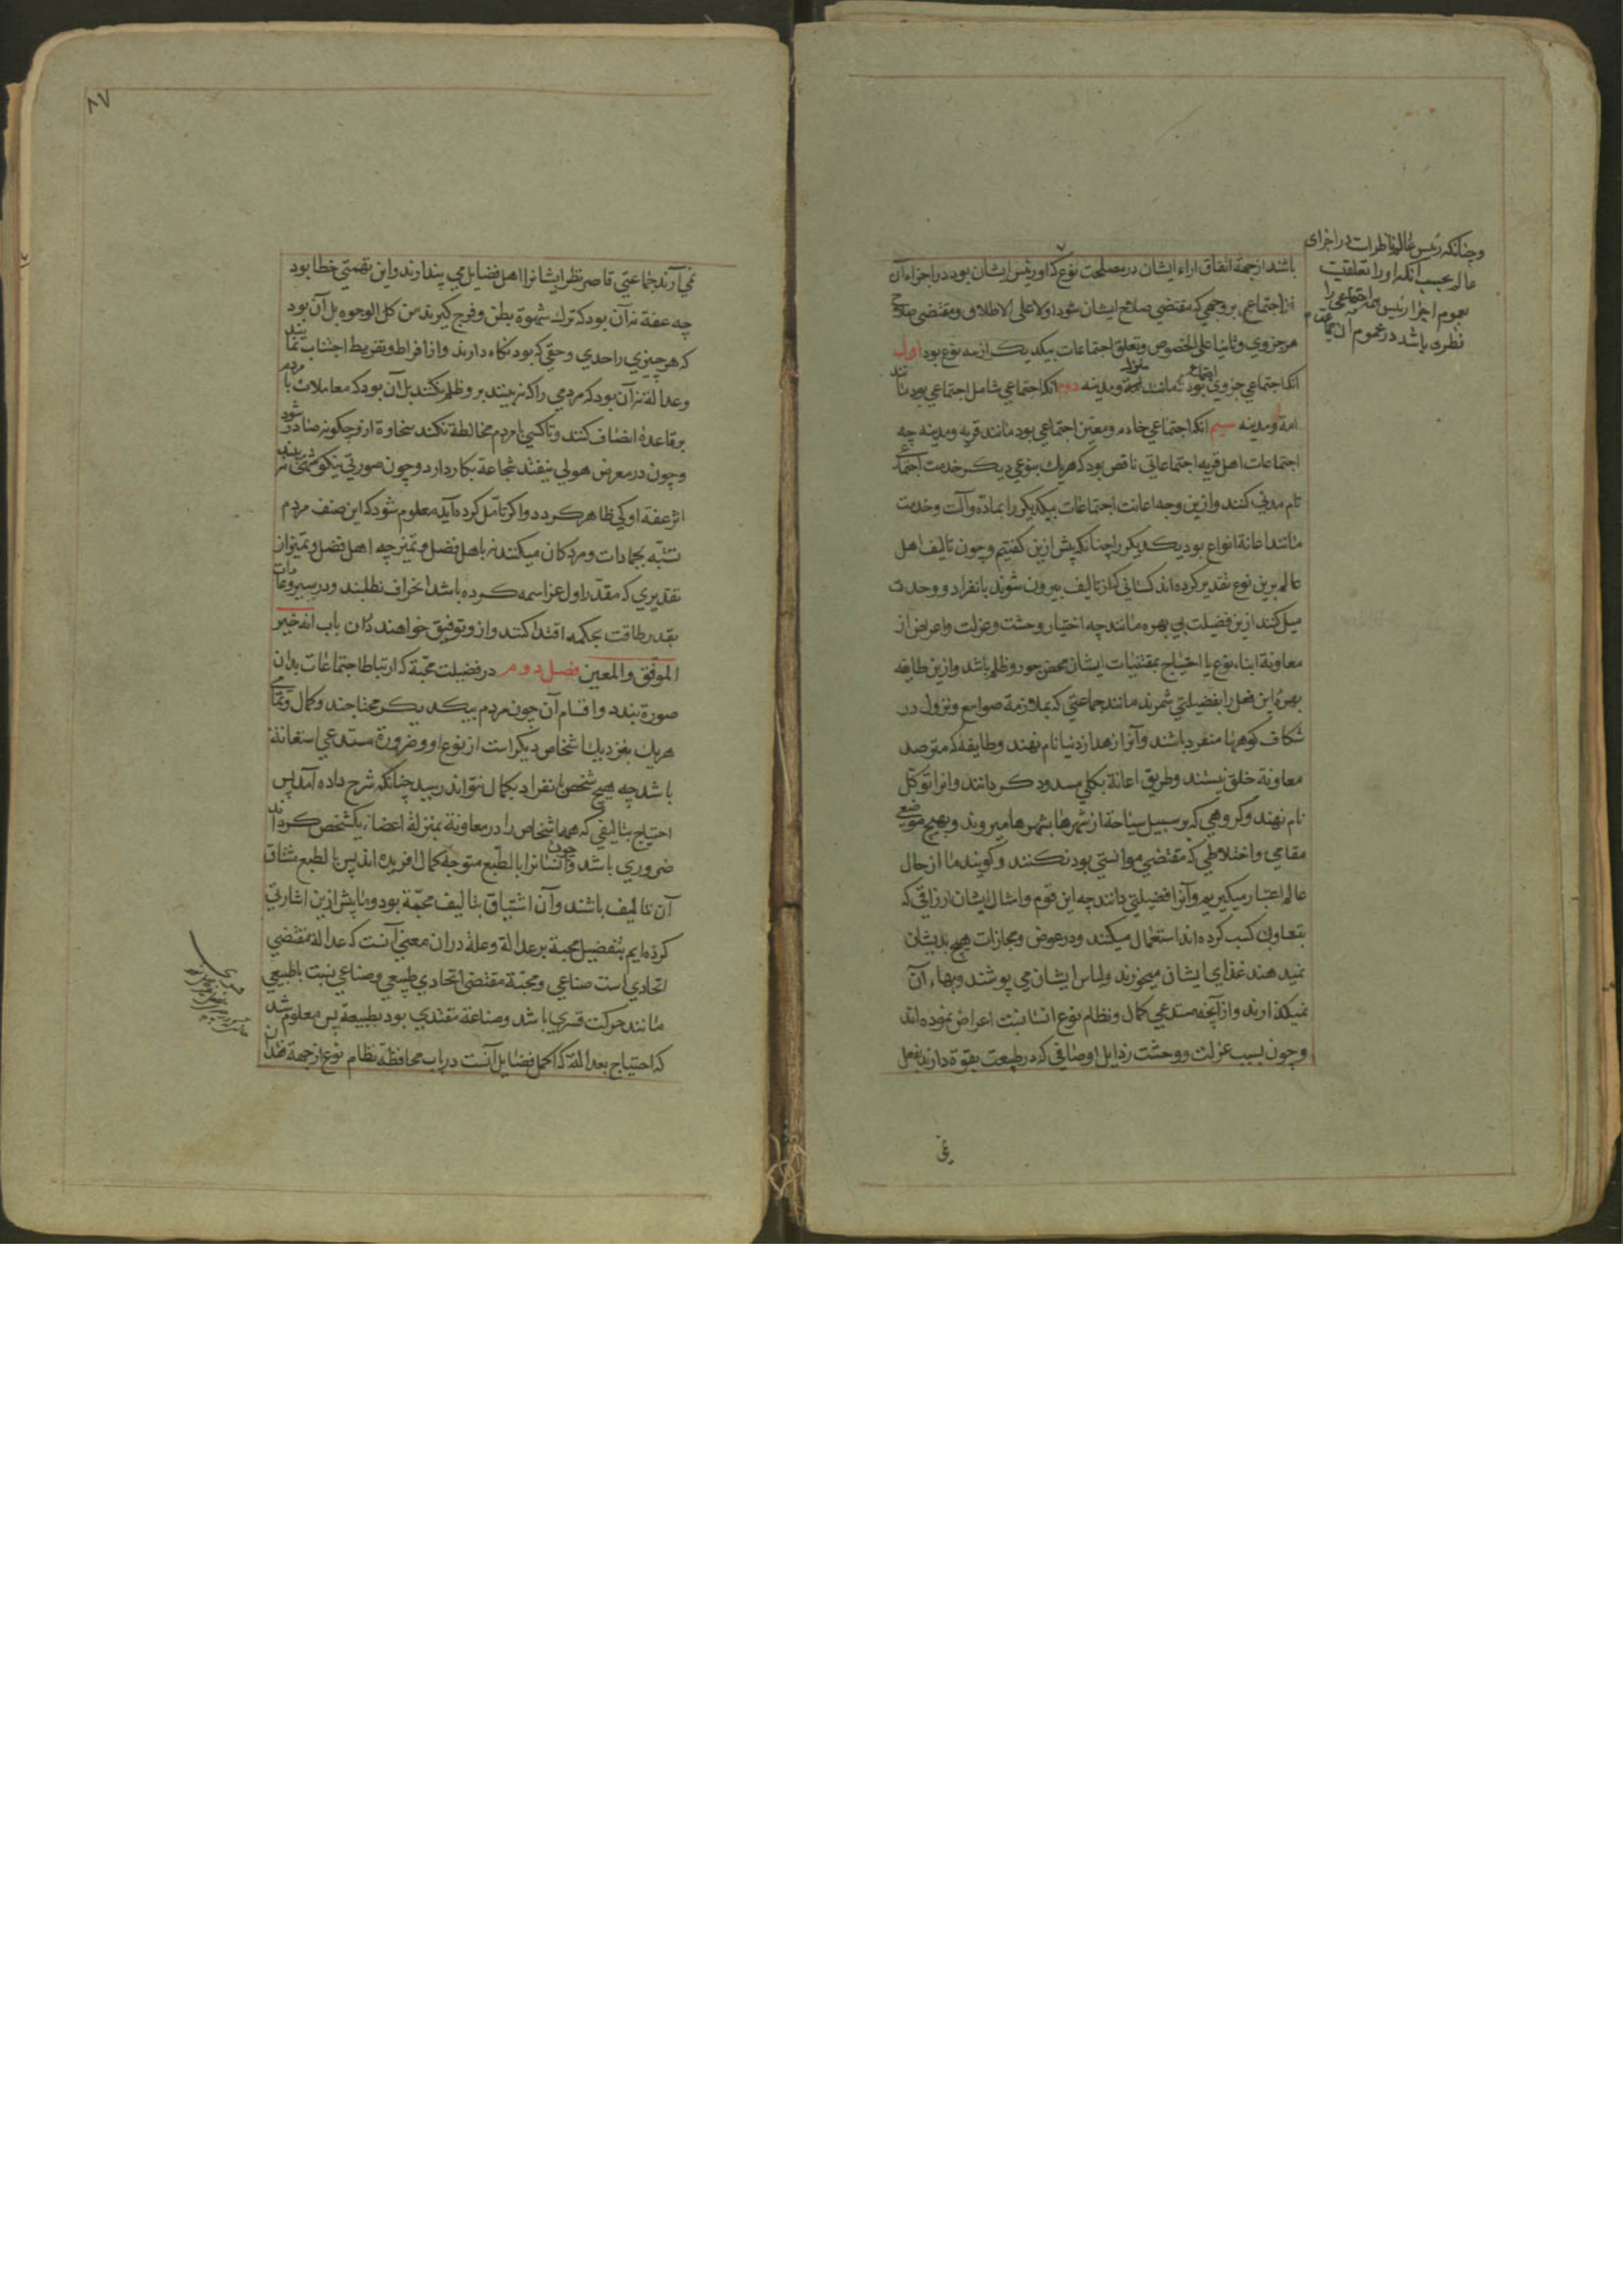 وچنانکه رئیس عالم ناظر است در اجزای
عالم بحسب آنکه اورا تعلقیست
بعموم اجزا رئیس هر اجتماعی را
نظری باشد در عموم آن جماعت
باشد از جهة اتفاق اراء ایشان در مصلحت نوع که اورئیس ایشان بود در اجزاء آن
از اجتماعی بر وجهی که مقتضی صلاح ایشان شود اولا علی الاطلاق ومقتضی صلاح
هر جزوی وثانیا علی الخصوص وتعلق اجتماعات بیکدیکر از سه نوع بود اول
آنکه اجتماعی جزوی اجتماعی بود مانند منزل ومدینه دوم آنکه اجتماعی شامل اجتماعی بود مانند
امة ومدینه سیم آنکه اجتماعی خادم ومعین اجتماعی بود مانند قریه ومدینه چه
اجتماعات اهل قریه اجتماعاتی ناقص بود که هریك بنوعی دیکر خدمت اجتماع
تام مدنی کنند وازین وجه اعانت اجتماعات بیکدیکر را بماده وآلت وخدمت
مانند اعانة انواع بود یکدیکر را چنانکه پیش ازین کفتیم وچون تالیف اهل
عالم برین نوع تقدیر کرده اند کسانی که از تالیف بیرون شوند بانفراد ووحدت
میل کنند ازین فضیلت بی بهره مانند چه اختیار وحشت وعزلت واعراض از
معاونة ابناء نوع با احتیاج بمقتنیات ایشان محض جور وظلم باشد وازین طایفه
بهری این فعل را بفضیلتی شمرند مانند جماعتی که بملازمة صوامع ونزول در
شکاف کوهها منفرد باشند وآنرا زهد از دنیا نام نهند وطایفه که مترصد
معاونة خلق نیستند وطریق اعانة بکلی مسدود کردانند وانرا توکل
نام نهند وکروهی که بر سبیل سیاحة از شهرها بشهرها میروند وبهیچ موضع
مقامی واختلاطی که مقتضی موانستی بود نکنند وکویند ما از حال
عالم اعتبار میکیریم وآنرا فضیلتی دانند چه این قوم وامثال ایشان ارزاقی که
بتعاون کسب کرده اند استعمال میکنند ودر عوض ومجازات هیچ بدیشان
نمیدهند غذای ایشان میخورند ولباس ایشان می پوشند وبهاء آن
نمیکذارند واز آنچه مستدعی کمال ونظام نوع انسانیت اعراض نموده اند
وچون بسبب عزلت ووحشت رذایل اوصافی که در طبیعت بقوة دارند بفعل
نمی آرند جماعتی قاصر نظر ایشانرا اهل فضایل می پندارند واین توهمی خطا بود
چه عفة نه آن بود که ترك شهوة بطن وفرج کیرند من کل الوجوه بل آن بود
که هر چیزی را حدی وحقی که بود نکاه دارند واز افراط وتفریط اجتناب نمایند
وعدالة نه آن بود که مردمی را که نبینند بر وظلم نکنند بل آن بود که معاملات با مردم
بر قاعدة انصاف کنند وتا کسی با مردم مخالطة نکند سخاوة ازو چکونه صادر شود
وچون در معرض هولی نیفتد شجاعة بکار دارد وچون صورتی نیکو شهی نه بیند
اثر عفة اوکی ظاهر کردد واکر تامل کرده آید معلوم شود که این صنف مردم
تشبه بجمادات ومردکان میکنند نه باهل فضل وتمیز چه اهل فضل وتمیز از
تقدیری که مقدر اول عز اسمه کرده باشد انحراف نطلبند ودر سیر وعادات
بقدر طاقت بحکمة اقتدا کنند وازو توفیق خواهند دران باب انه خیر
الموفق والمعین فصل دوم در فضیلت محبة که ارتباط اجتماعات بدان
صورة بندد واقسام آن چون مردم بیکدیکر محتاجند وکمال وتمامی
هریك بنزدیك اشخاص دیکر است از نوع او وضرورة مستدعی استعانة
باشد چه هیچ شخص بانفراد بکمال نتواند رسید چنانکه شرح داده آمد پس
احتیاج بتالیفی که همه اشخاص را در معاونة بمنزلة اعضاء یکشخص کرداند
ضروری باشد وچون انسانرا بالطبع متوجه کمال افریده اند پس بالطبع مشتاق
آن تالیف باشند وآن اشتیاق بتالیف محبة بود وما پیش ازین اشارتی
کرده ایم بتفضیل محبة بر عدالة وعلة دران معنی آنست که عدالة مقتضی
اتحادی است صناعی ومحبة مقتضی اتحادی طبیعی وصناعی نسبت باطبیعی
مانند حرکت قسری باشد وصناعة مقتدی بود بطبیعة پس معلوم شد
که احتیاج بعدالة که اکمل فضایل آنست در باب محافظة نظام نوع از جهة فقدان
۸۷